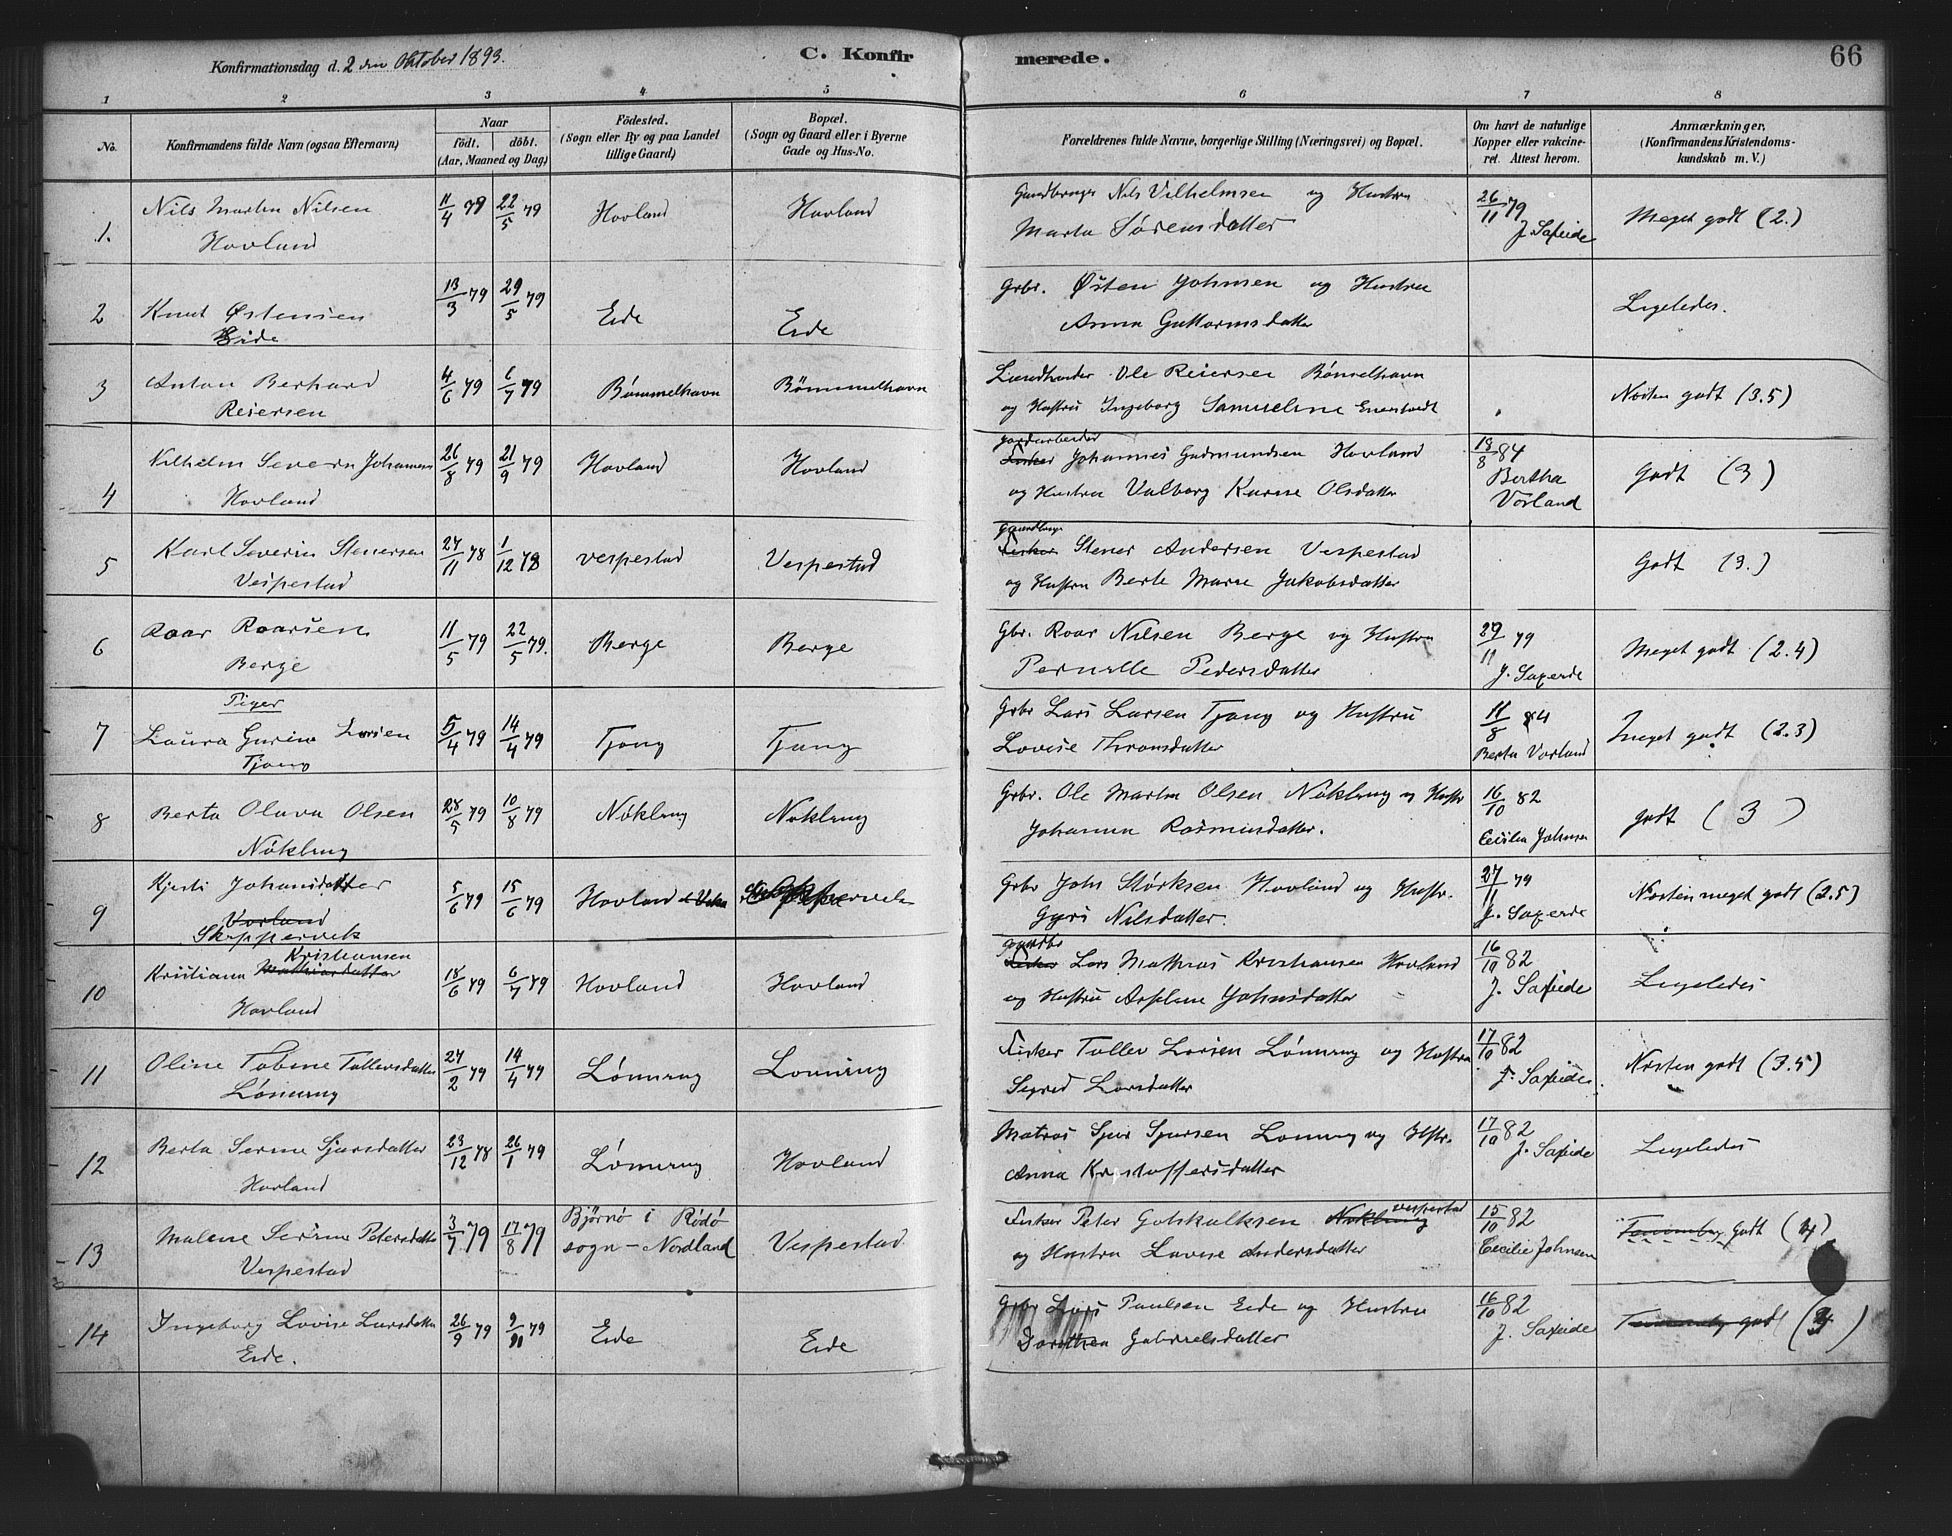 Konfirmationsdag d. 2 den Oktober 1893.
C. Konfir
merede.
66
1 2 3 4 5 6 7 8
No.
Konfirmandens fulde Navn (ogsaa Efternavn)
Naar
födt. döbt.
(Aar, Maaned og Dag)
Födested.
(Sogn eller By og paa Landet
tillige Gaard)
Bopæl.
(Sogn og Gaard eller i Byerne
Gade og Hus-No.
Forældrenes fulde Navne, borgerlige Stilling (Næringsvei) og Bopæl.
Om havt de naturlige
Kopper eller vakcine-
ret. Attest herom.
Anmærkninger.
(Konfirmandens Kristendoms-
kundskab m. V.)
1. Nils Martin Nilsen
Hovland
11/4 79 22/5 79 Hovland Hovland
Gaardbruger Nils Vilhelmsen og Hustru
Marta Sørensdatter
26/11 79
J. Saxeide
Meget godt (2.)
2 Knut Østensen
Eide
13/3 79 29/5 79 Eide Eide
Grbr. Østen Johnsen og Hustru
Anna Guttormsdatter
Ligeledes.
3 Anton Berhard
Reiersen
4/6 79 6/7 79 Bømmelhavn Bømmelhavn
Landhandler Ole Reiersen
og Hustru Ingeborg Samueline
Næsten godt (3.5)
4 Vilhelm Severin Johannesen
Hovland
26/8 79 21/9 79 Hovland Hovland
Gaardarbeider
Fisker Johannes Gudmundsen Hovland
og Hustru Valborg Karine Olsdatter
18/8 84
Bertha
Vorland
Godt (3)
5 Karl Severin Stenersen
Vespestad
27/11 78 1/12 78 Vespestad Vespestad
Gaardbruger
Fisker Stener Andersen Vespestad
og Hustru Berte Marie Jakobsdatter
Godt (3.)
6 Roar Roarsen
Berge
11/5 79 22/5 79. Berge Berge
Gbr. Roar Nilsen Berge og Hustru
Pernille Pedersdatter
29/11 79
J. Saxeide
Meget godt (2.4)
Piger
7 Laura Gurine Larsen
Tjong
5/4 79 14/4 79 Tjong Tjong
Grbr Lars Larsen Tjong og Hustru
Lovise Thronsdatter
11/8 84
Berta Vorland
Meget godt (2.3)
8 Berta Olava Olsen
Nökling
28/5 79 10/8 79 Nökling Nökling
Grbr. Ole Martin Olsen Nökling og Hustr
Johanna Rasmusdatter.
16/10 82
Cecilia Johnsen
godt (3)
9 Kjersti Johansdatter
Vorland
Skippervik
5/6 79 15/6 79 Hovland
Grbr John Størksen Hovland og Hustr.
Gyri Nilsdatter.
27/11 79
J. Saxeide
Næsten meget godt (2.5)
10 Kristiana Mathiasdatter Kristiansen
Hovland
18/6 79 6/7 79 Hovland Hovland
Gaardbr
Fisker Lars Mathias Kristiansen Hovland
og Hustru Aseline Johnsdatter
16/10 82
J. Saxeide
Ligeledes
11 Oline Tobine Tollersdatter
Lönning
27/2 79 14/4 79 Lönning Lönning
Fisker Toller Larsen Lönning og Hustru
Sigrid Larsdatter
17/10 82
J. Saxeide.
Næsten godt (3.5)
12 Berta Serine Sjursdatter
Hovland
23/12 78 26/1 79 Lönning Hovland
Matros Sjur Sjursen Lönning og Hustr.
Anna Kristoffersdatter
17/10 82
J. Saxeide
Ligeledes
13 Malene Serine Petersdatter
Vespestad
3/7 79 17/8 79 Bjørnø i Rødø
sogn - Nordland
Vespestad
Fisker Peter Gotskalksen Nökling Vespestad
og Hustru Lovise Andersdatter
15/10 82
Cecilie Johnsen
Temmelig Godt (4)
14 Ingeborg Lovise Larsdatter
Eide.
26/9 79 9/11 79 Eide Eide
Grbr Lars Paulsen Eide og Hustru
Dorothea Gabrielsdatter
16/10 82
J. Saxeide
Temmelig godt